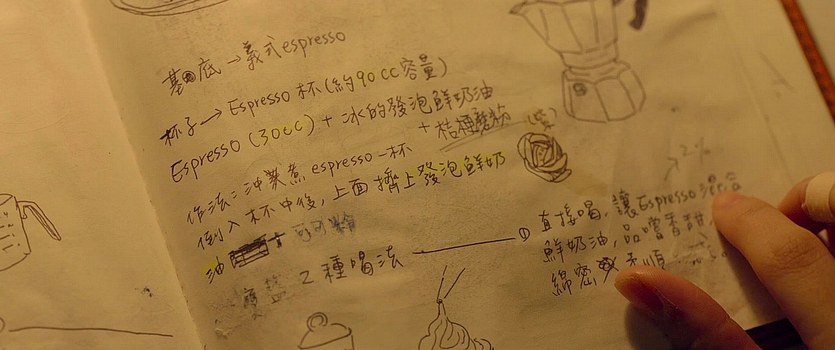 基底→義式espresso
杯子→Espresso 杯(約90cc容量)
Espresso (30cc) + 冰的發泡鮮奶油
+ 桔梗 (紫)
作法:沖煮煮espresso一杯
倒入杯中後,上面擠上發泡鮮奶
油 可可粉
2種喝法
① 直接喝,讓Espresso混合
鮮奶油,品嚐香甜
綿密 順